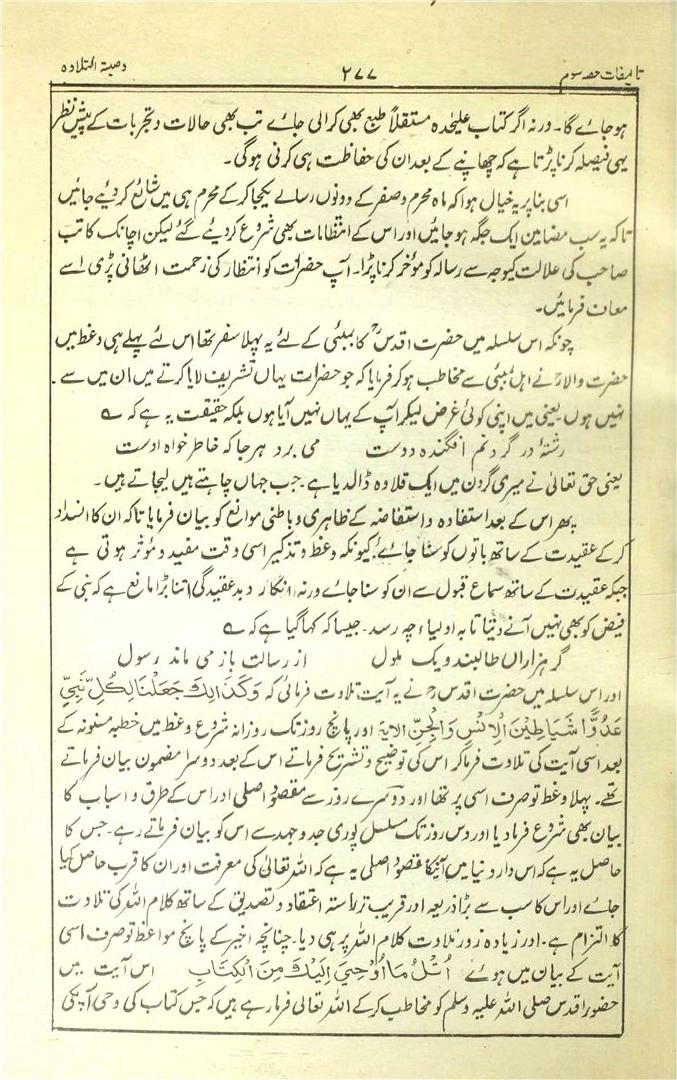 تالیفات حصہ سوم ۲۷۷ وصیۃ التلاوہ
ہوجائے گا۔ ورنہ اگر کتاب علیحدہ مستقلاً طبع بھی کرالی جائے تب بھی حالات و تجربات کے پیش نظر
یہی فیصلہ کرنا پڑتا ہے کہ چھاپنے کے بعد ان کی حفاظت ہی کرنی ہوگی۔
اسی بنا پر یہ خیال ہوا کہ ماہ محرم و صفر کے دونوں رسالے یکجا کرکے محرم ہی میں شائع کردیئے جائیں
تاکہ یہ سب مضامین ایک جگہ ہوجائیں اور اس کے انتظامات بھی شروع کردیئے گئے لیکن اچانک کاتب
صاحب کی علالت کیوجہ سے رسالہ کو مؤخر کرنا پڑا۔ آپ حضرات کو انتظار کی زحمت اٹھانی پڑی اسے
معاف فرمائیں۔
چونکہ اس سلسلہ میں حضرت اقدسؒ کا بمبئی کے لئے یہ پہلا سفر تھا اس لئے پہلے ہی وعظ میں
حضرت والاؒ نے اہل بمبئی سے مخاطب ہوکر فرمایا کہ جو حضرات یہاں تشریف لایا کرتے ہیں ان میں سے
نہیں ہوں یعنی میں اپنی کوئی غرض لیکر آپ کے یہاں نہیں آیا ہوں بلکہ حقیقت یہ ہے کہ ؎
رشتۂ در گردنم افگندہ دوست می برد ہرجا کہ خاطر خواہ اوست
یعنی حق تعالیٰ نے میری گردن میں ایک قلادہ ڈالدیا ہے۔ جب جہاں چاہتے ہیں لیجاتے ہیں۔
پھر اس کے بعد استفادہ و استفاضہ کے ظاہری و باطنی موانع کو بیان فرمایا تاکہ ان کا انسداد
کرکے عقیدت کے ساتھ باتوں کو سنا جائے؛ کیونکہ وعظ و تذکیر اسی وقت مفید و مؤثر ہوتی ہے
جبکہ عقیدت کے ساتھ سماع قبول سے ان کو سنا جائے ورنہ انکار و بدعقیدگی اتنا بڑا مانع ہے کہ نبی کے
فیض کو بھی نہیں آنے دیتا تا بہ اولیاء چہ رسد۔ جیسا کہ کہا گیا ہے کہ ؎
گر ہزاراں طالبند و یک ملول از رسالت باز می ماند رسول
اور اس سلسلہ میں حضرت اقدسؒ نے یہ آیت تلاوت فرمائی کہ وَكَذَالِكَ جَعَلْنَا لِكُلِّ نَبِيٍّ
عَدُوًّا شَيَاطِيْنَ الْاِنْسِ وَالْجِنِّ الایۃ اور پانچ روز تک روزانہ شروع وعظ میں خطبہ مسنونہ کے
بعد اسی آیت کی تلاوت فرماکر اس کی توضیح و تشریح فرماتے اس کے بعد دوسرا مضمون بیان فرماتے
تھے۔ پہلا وعظ تو صرف اسی پر تھا اور دوسرے روز سے مقصود اصلی اور اس کے طرق و اسباب کا
بیان بھی شروع فرمادیا اور دس روز تک مسلسل پوری جد و جہد سے اس کو بیان فرماتے رہے۔ جس کا
حاصل یہ ہے کہ اس دار دنیا میں آنیکا مقصود اصلی یہ ہے کہ اللہ تعالیٰ کی معرفت اور ان کا قرب حاصل کیا
جائے اور اس کا سب سے بڑا ذریعہ اور قریب تر راستہ اعتقاد و تصدیق کے ساتھ کلام اللہ کی تلاوت
کا التزام ہے۔ اور زیادہ زور تلاوت کلام اللہ پر ہی دیا۔ چنانچہ اخیر کے پانچ مواعظ تو صرف اسی
آیت کے بیان میں ہوئے اُتْلُ مَا اُوْحِیَ اِلَيْكَ مِنَ الْكِتَابِ اس آیت میں
حضور اقدس صلی اللہ علیہ وسلم کو مخاطب کرکے اللہ تعالیٰ فرما رہے ہیں کہ جس کتاب کی وحی آپکی